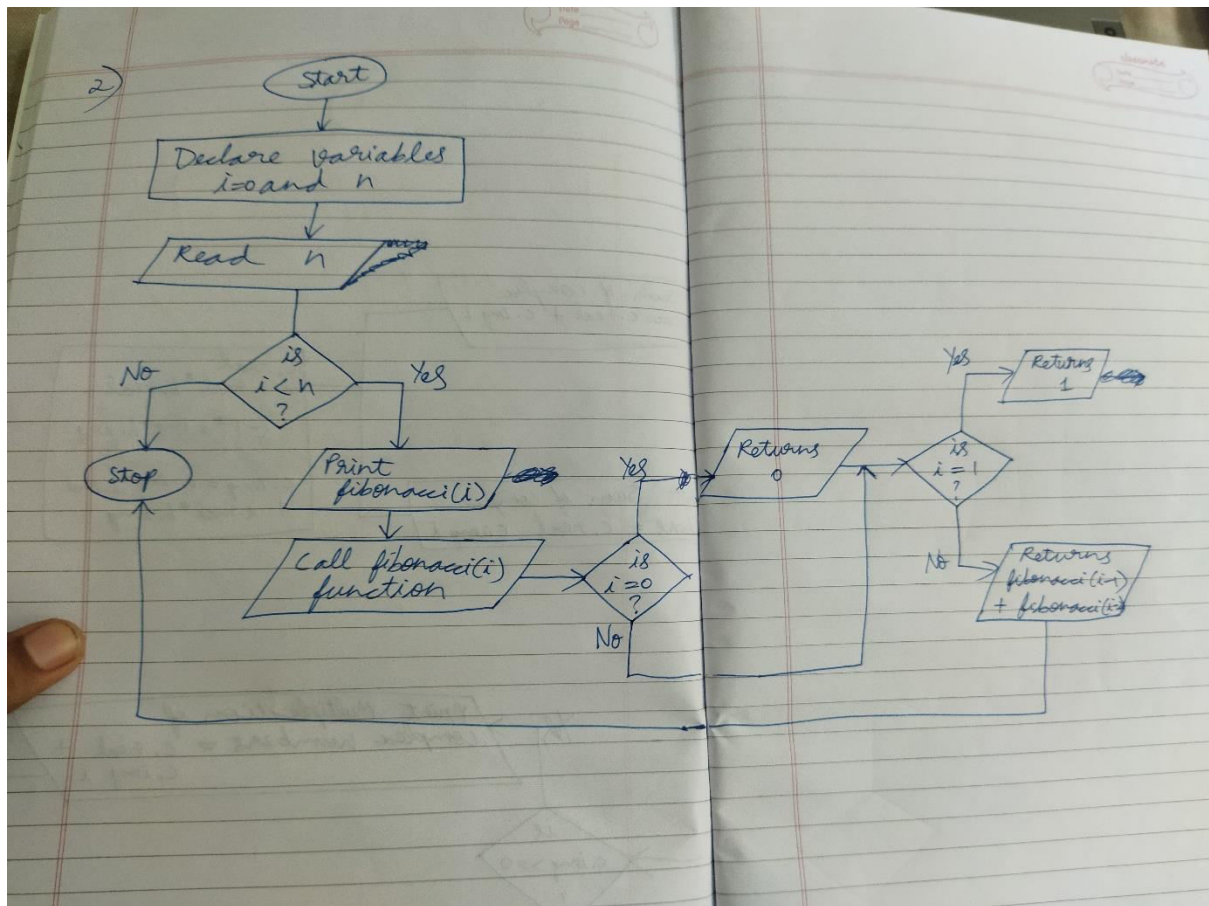 2)
Start
Declare variables
i=0 and n
Read n
is
i < n
?
No
Yes
Stop
Print
fibonacci(i)
Call fibonacci(i)
function
is
i=0
?
Yes
No
Returns
0
is
i=1
?
Yes
Returns
1
No
Returns
fibonacci(i-1)
+ fibonacci(i-2)
Date
Page
classmate
Date
Page